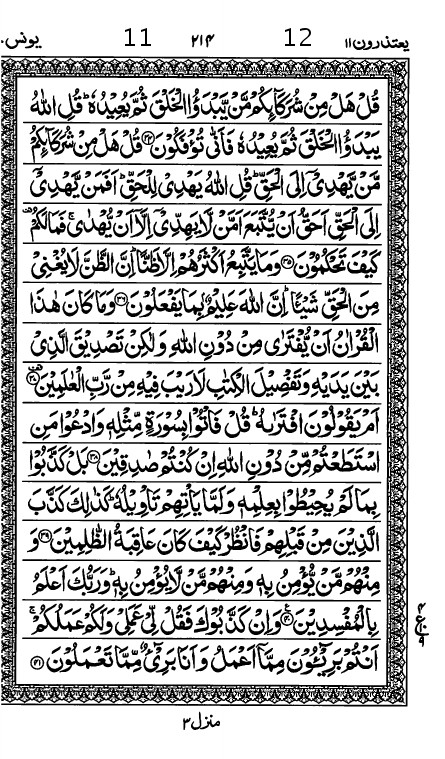 یعتذرون ۱۱ 12 ۲۱۴ 11 یونس ۱۰
قُلۡ هَلۡ مِنۡ شُرَكَآئِكُمۡ مَّنۡ يَّبۡدَؤُا الۡخَلۡقَ ثُمَّ يُعِيۡدُهٗ ؕ قُلِ اللّٰهُ
يَبۡدَؤُا الۡخَلۡقَ ثُمَّ يُعِيۡدُهٗ فَاَنّٰى تُؤۡفَكُوۡنَ ﴿۳۴﴾ قُلۡ هَلۡ مِنۡ شُرَكَآئِكُمۡ
مَّنۡ يَّهۡدِىۡۤ اِلَى الۡحَقِّ ؕ قُلِ اللّٰهُ يَهۡدِىۡ لِلۡحَقِّ ؕ اَفَمَنۡ يَّهۡدِىۡۤ
اِلَى الۡحَقِّ اَحَقُّ اَنۡ يُّتَّبَعَ اَمَّنۡ لَّا يَهِدِّىۡۤ اِلَّاۤ اَنۡ يُّهۡدٰى ۚ فَمَا لَكُمۡ
كَيۡفَ تَحۡكُمُوۡنَ ﴿۳۵﴾ وَمَا يَتَّبِعُ اَكۡثَرُهُمۡ اِلَّا ظَنًّا ؕ اِنَّ الظَّنَّ لَا يُغۡنِىۡ
مِنَ الۡحَقِّ شَيۡــًٔا ؕ اِنَّ اللّٰهَ عَلِيۡمٌۢ بِمَا يَفۡعَلُوۡنَ ﴿۳۶﴾ وَمَا كَانَ هٰذَا
الۡقُرۡاٰنُ اَنۡ يُّفۡتَرٰى مِنۡ دُوۡنِ اللّٰهِ وَلٰكِنۡ تَصۡدِيۡقَ الَّذِىۡ
بَيۡنَ يَدَيۡهِ وَتَفۡصِيۡلَ الۡكِتٰبِ لَا رَيۡبَ فِيۡهِ مِنۡ رَّبِّ الۡعٰلَمِيۡنَ ﴿۳۷﴾
اَمۡ يَقُوۡلُوۡنَ افۡتَرٰٮهُ ؕ قُلۡ فَاۡتُوۡا بِسُوۡرَةٍ مِّثۡلِهٖ وَادۡعُوۡا مَنِ
اسۡتَطَعۡتُمۡ مِّنۡ دُوۡنِ اللّٰهِ اِنۡ كُنۡتُمۡ صٰدِقِيۡنَ ﴿۳۸﴾ بَلۡ كَذَّبُوۡا
بِمَا لَمۡ يُحِيۡطُوۡا بِعِلۡمِهٖ وَلَمَّا يَاۡتِهِمۡ تَاۡوِيۡلُهٗ ؕ كَذٰلِكَ كَذَّبَ
الَّذِيۡنَ مِنۡ قَبۡلِهِمۡ فَانْظُرۡ كَيۡفَ كَانَ عَاقِبَةُ الظّٰلِمِيۡنَ ﴿۳۹﴾ وَ
مِنۡهُمۡ مَّنۡ يُّؤۡمِنُ بِهٖ وَمِنۡهُمۡ مَّنۡ لَّا يُؤۡمِنُ بِهٖ ؕ وَرَبُّكَ اَعۡلَمُ
بِالۡمُفۡسِدِيۡنَ ﴿۴۰﴾ وَاِنۡ كَذَّبُوۡكَ فَقُلْ لِّىۡ عَمَلِىۡ وَلَكُمۡ عَمَلُكُمۡ ۚ
اَنۡتُمۡ بَرِيۡٓــُٔوۡنَ مِمَّاۤ اَعۡمَلُ وَاَنَا بَرِىۡٓءٌ مِّمَّا تَعۡمَلُوۡنَ ﴿۴۱﴾
منزل ۳